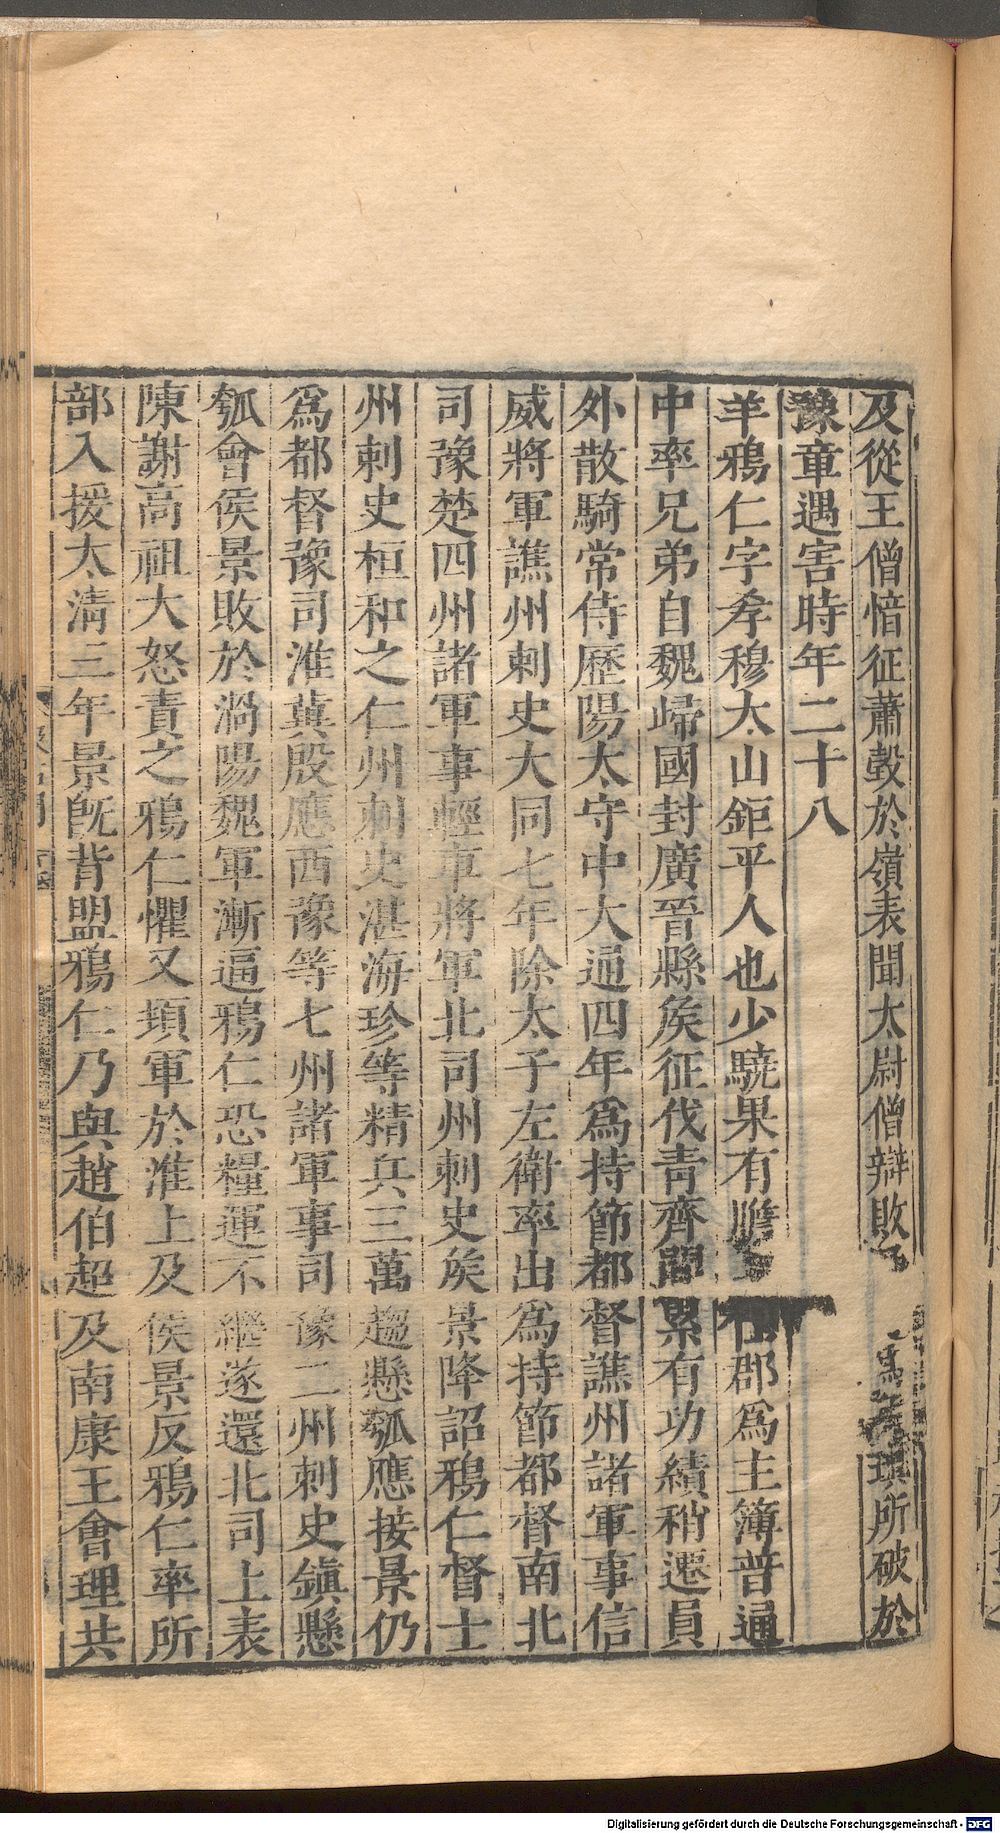 及從王僧愔征蕭㪍於嶺表聞太尉僧辯敗 爲 瑱所破於
豫章遇害時年二十八
羊鴉仁字孝穆太山鉅平人也少驍果有膽 仕郡爲主簿普通
中率兄弟自魏歸國封廣晉縣侯征伐青齊間累有功績稍遷員
外散騎常侍歷陽太守中大通四年爲持節都督譙州諸軍事信
威將軍譙州剌史大同七年除太子左衛率出爲持節都督南北
司豫楚四州諸軍事輕車將軍北司州剌史侯景降詔鴉仁督士
州剌史桓和之仁州剌史湛海珍等精兵三萬趨懸瓠應接景仍
爲都督豫司淮冀殷應西豫等七州諸軍事司豫二州剌史鎮懸
瓠會侯景敗於渦陽魏軍漸逼鴉仁恐糧運不繼遂還北司上表
陳謝高祖大怒責之鴉仁懼又頓軍於淮上及侯景反鴉仁率所
部入援太清三年景旣背盟鴉仁乃與趙伯超及南康王會理共
Digitalisierung gefördert durch die Deutsche Forschungsgemeinschaft - DFG